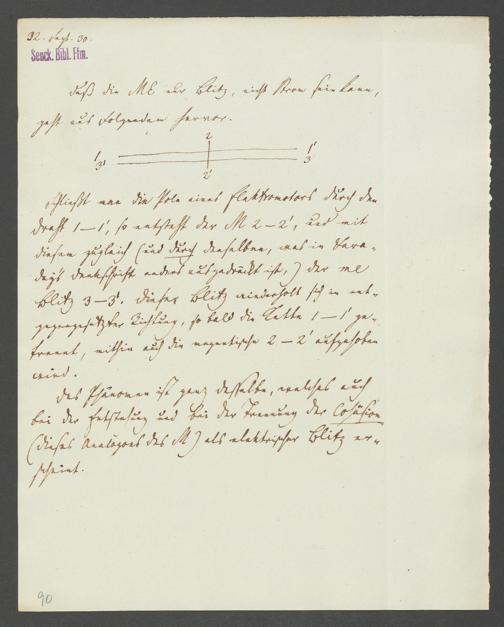 32. Sept. 30.
Senck. Bibl. Ffm.
Daß die ME nur Blitz, nicht Strom sein kann,
geht aus Folgendem hervor.
2
1 1'
3' 3
2'
Schließt man die Pole eines Elektromotors durch den
Draht 1—1', so entsteht der M 2—2', und mit
diesem zugleich (und durch denselben, was in Fara-
day's Denkschrift anders ausgedrückt ist,) der me
Blitz 3—3'. Dieser Blitz wiederholt sich in ent-
gegengesetzter Richtung, so bald die Kette 1—1' ge-
trennt, mithin auch die magnetische 2—2' aufgehoben
wird.
Das Phänomen ist ganz dasselbe, welches auch
bei der Entstehung und bei der Trennung der Cohäsion
(dieses Analogons des M) als elektrischer Blitz er-
scheint.
90